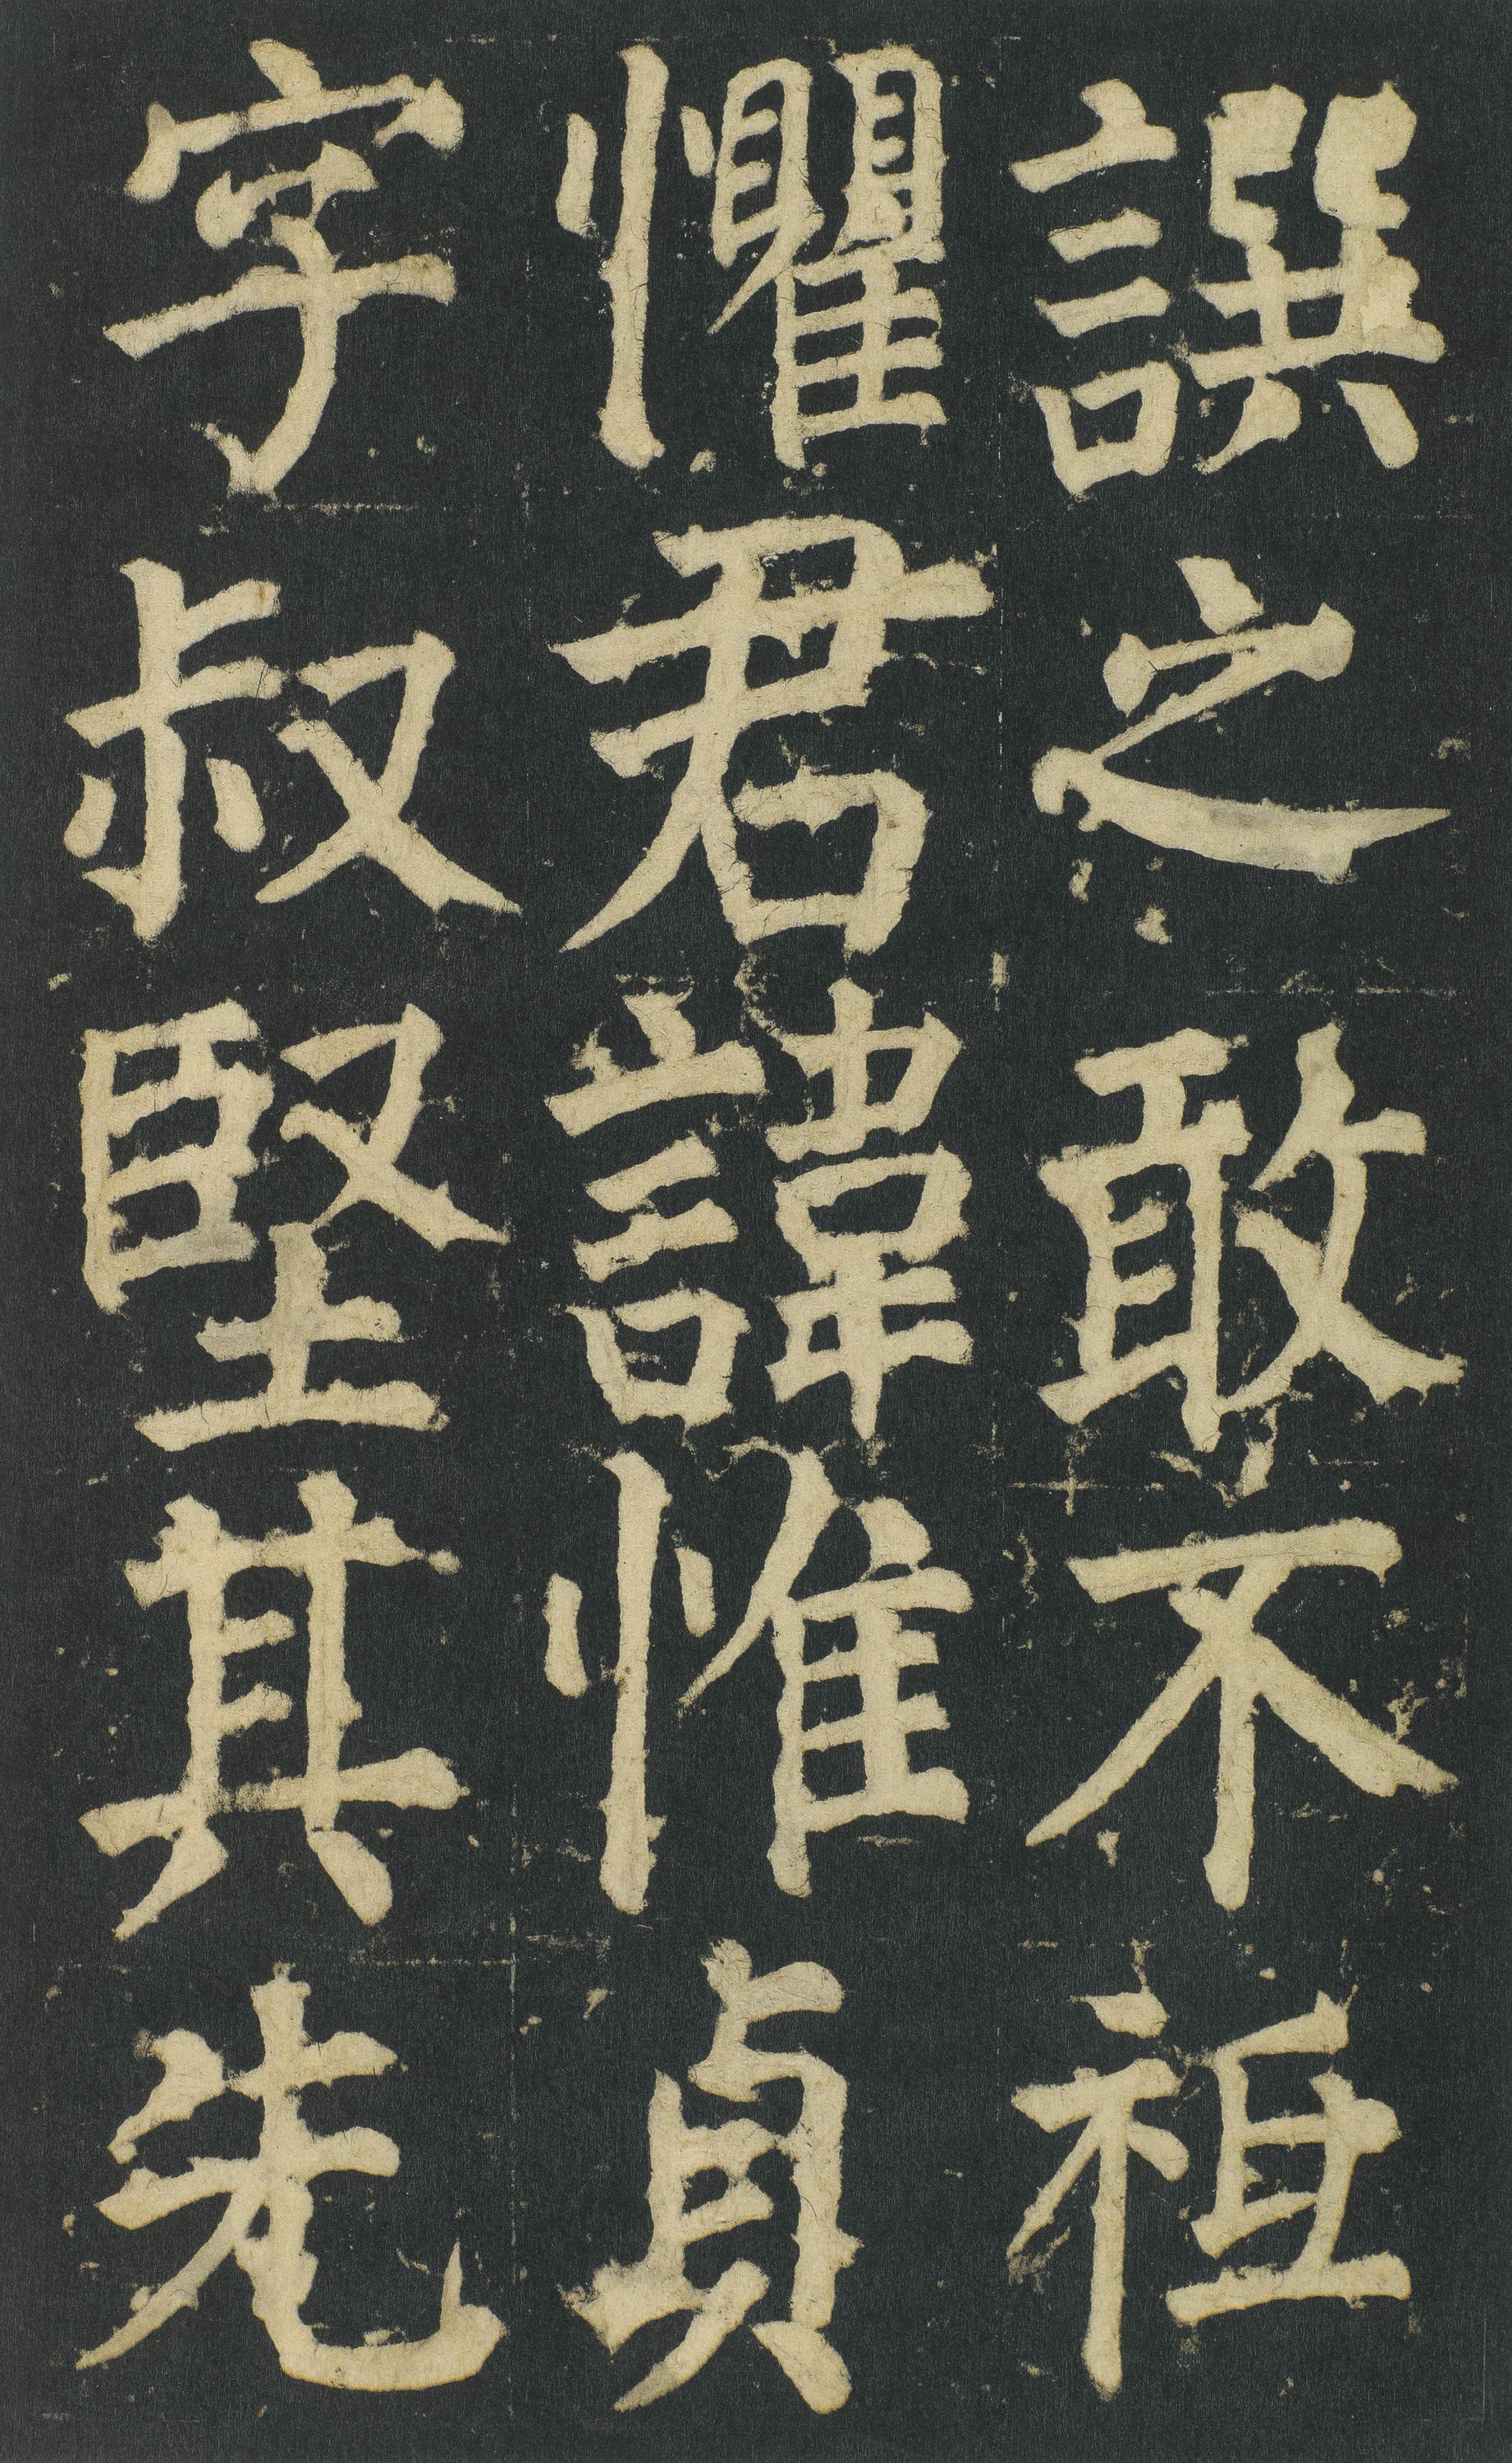 譔之敢不祗
懼君諱惟貞
字叔堅其先